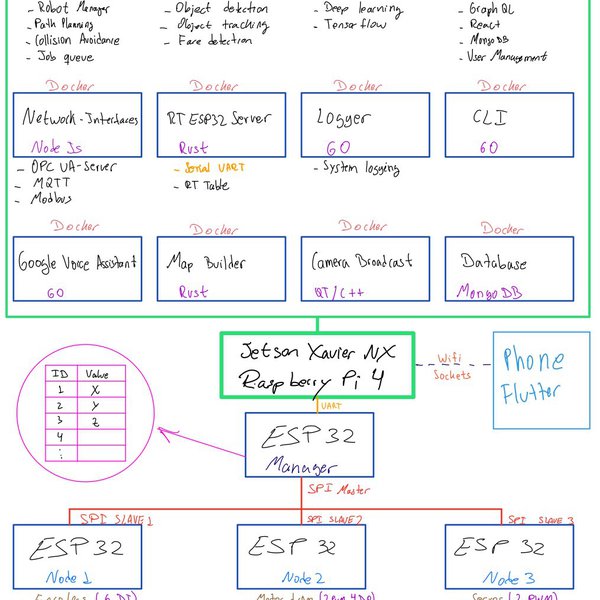 - Robot Manager
- Path Planning
- Collision Avoidance
- Job queue
- Object detection
- Object tracking
- Face detection
- Deep learning
- Tensor flow
- Graph QL
- React
- MongoDB
- User Management
Docker
Network-Interfaces
Node Js
- OPC UA-Server
- MQTT
- Modbus
Docker
RT ESP32 Server
Rust
- Serial UART
- RT Table
Docker
Logger
GO
- System logging
Docker
CLI
GO
Docker
Google Voice Assistant
GO
Docker
Map Builder
Rust
Docker
Camera Broadcast
QT/C++
Docker
Database
MongoDB
Jetson Xavier NX
Raspberry Pi 4
Wifi
Sockets
Phone
Flutter
UART
ID Value
1 X
2 Y
3 Z
4
:
ESP 32
Manager
SPI Master
SPI SLAVE 1
SPI SLAVE 2
SPI SLAVE 3
ESP 32
Node 1
ESP 32
Node 2
ESP 32
Node 3